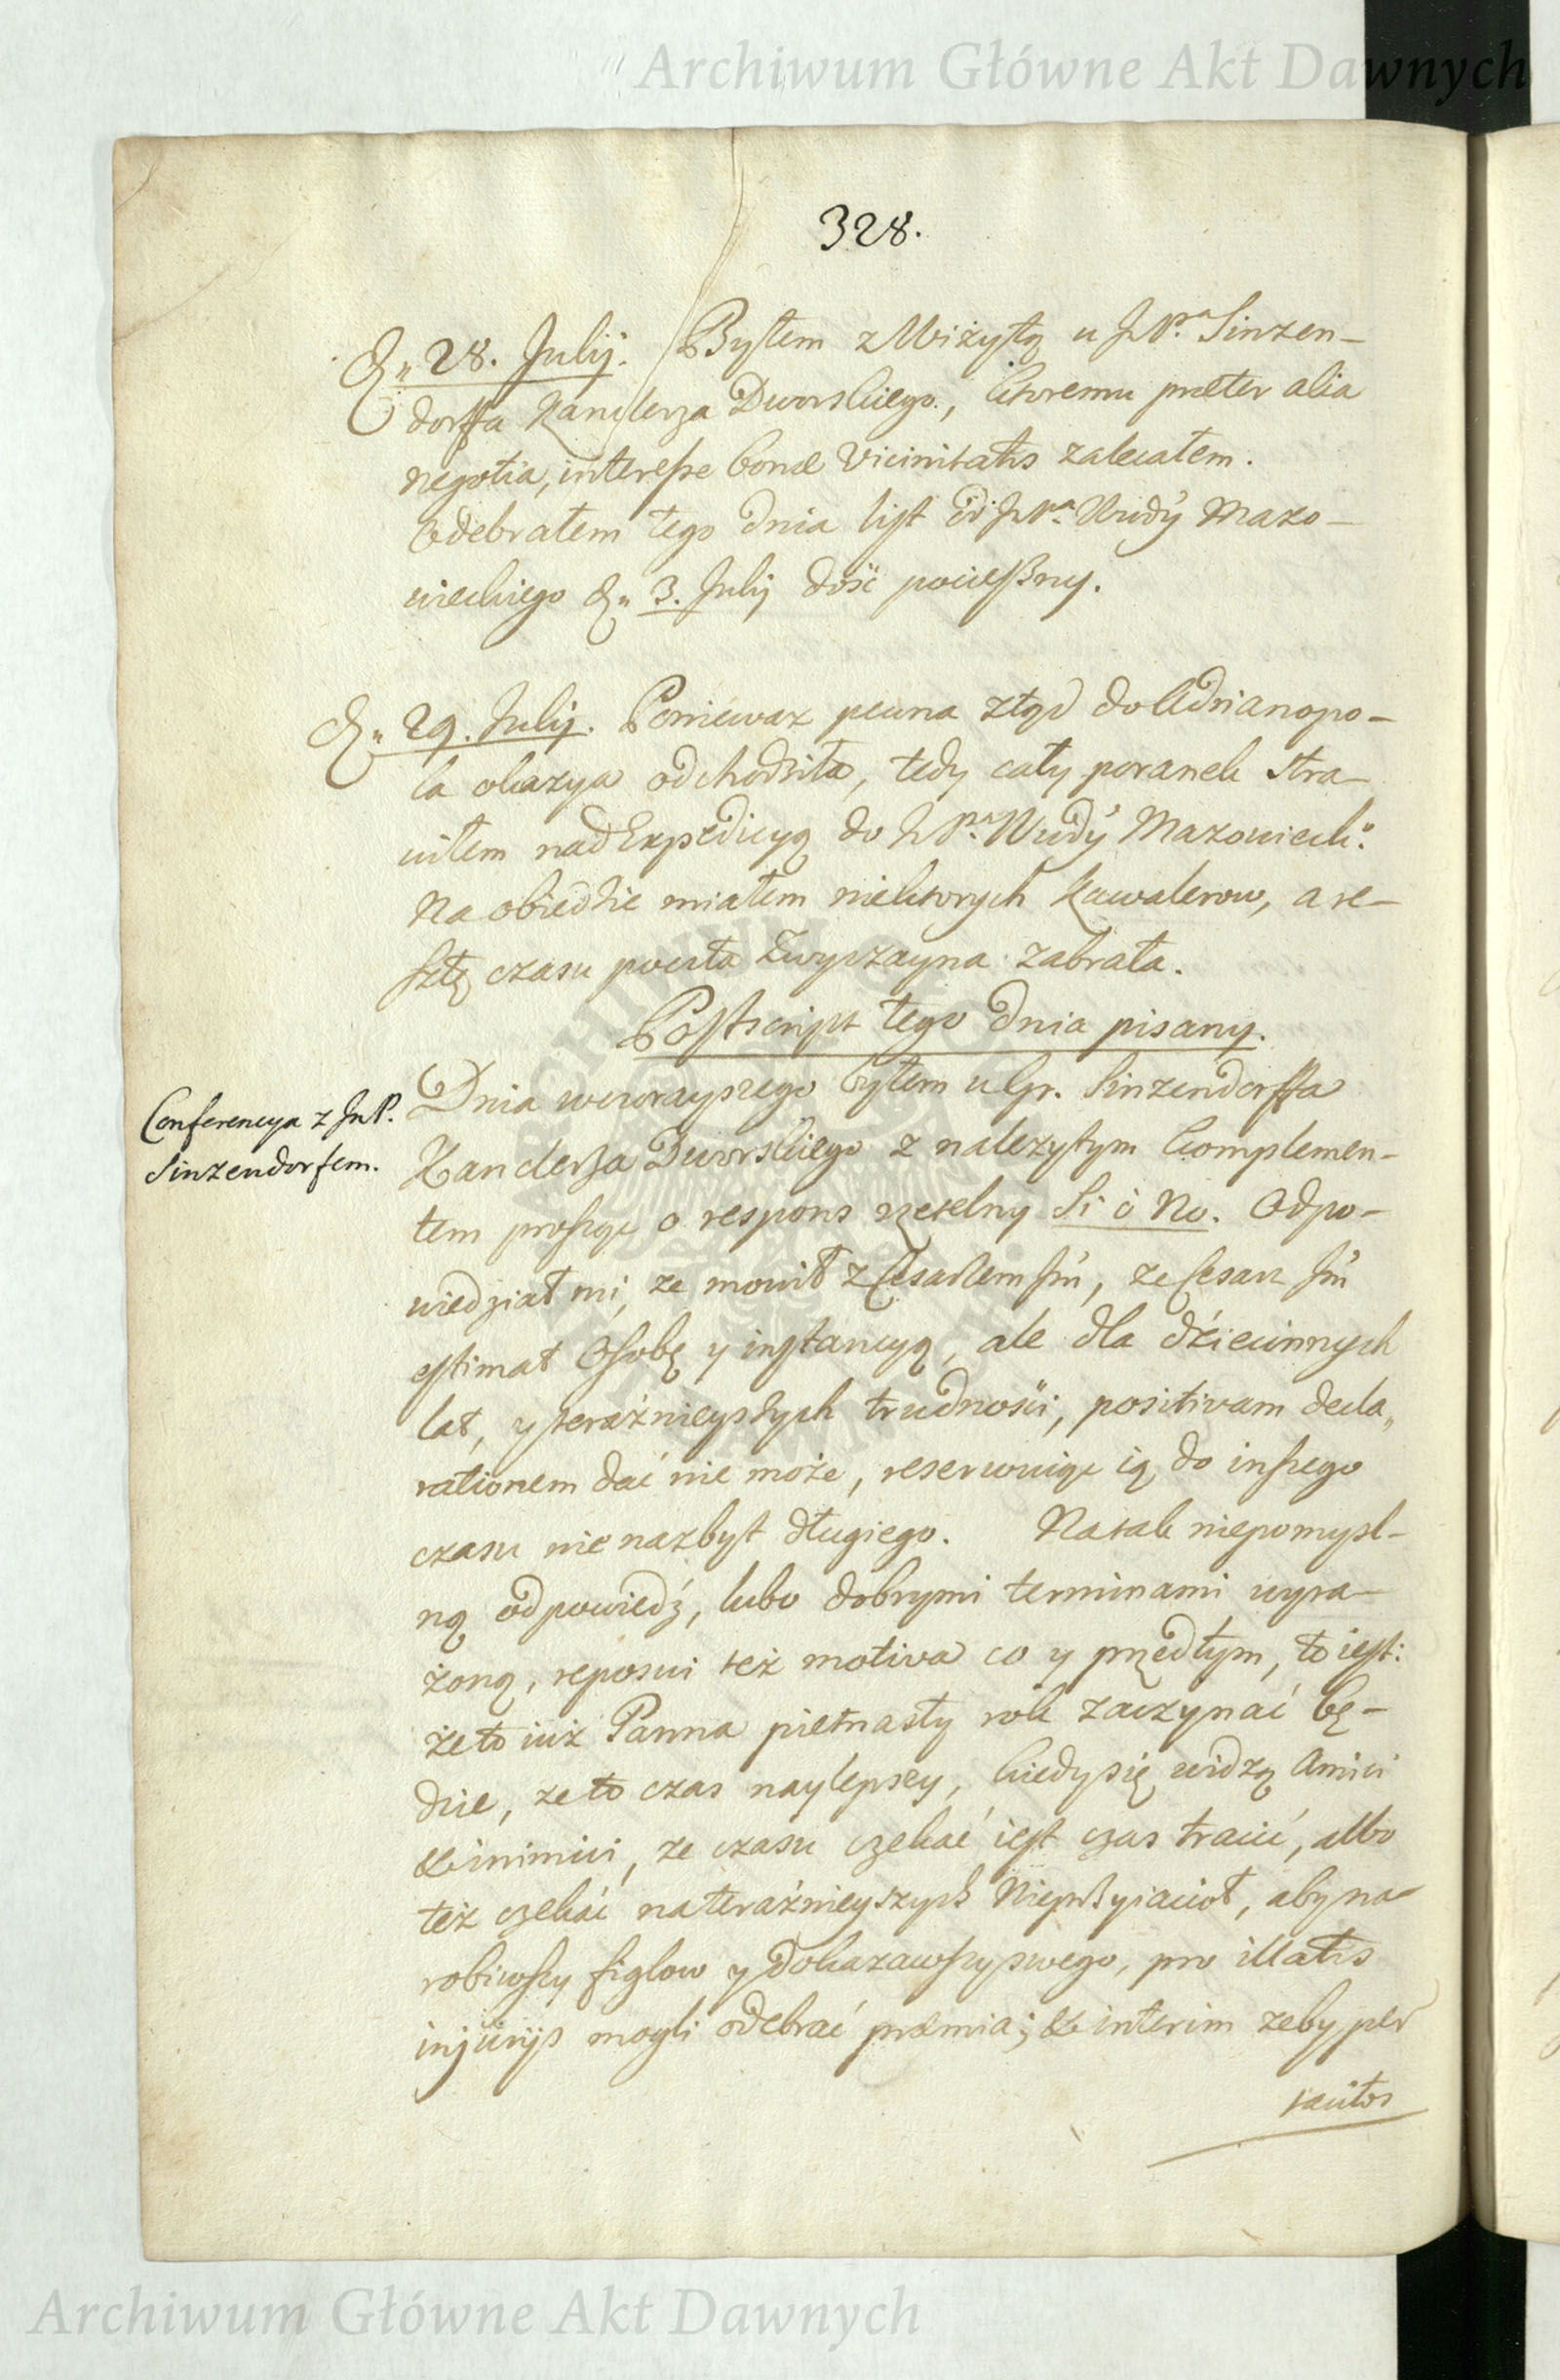 Archiwum Główne Akt Dawnych
328.
D. 28. Julij. Byłem z Wizytą u JPna Sinzen-
dorffa Kanclerza Dworskiego, ktoremu præter alia
negotia, interesse bonæ Vicinitatis zalecałem.
Odebrałem tego dnia list od JPna Wwdy Mazo-
wieckiego d. 3. Julij dość pocieszny.
D. 29. Julij. Ponieważ pewna ztąd do Adrianopo-
la okazya odchodziła, tedy cały poranek stra-
wiłem nad Expedicyą do JPna Wwdy Mazowieck:
Na obiedzie miałem niektorych Kawalerow, a re-
sztę czasu poczta zwyczayna zabrała.
Postscript tego dnia pisany.
Conferencya z JmP.
Sinzendorfem.
Dnia wczorayszego byłem u Gr. Sinzendorffa
Kanclerza Dworskiego z nalezytym komplemen-
tem prosząc o respons rzetelny Si ò No. Odpo-
wiedział mi, ze mowił z Cesarzem Jm, ze Cesarz Jm
estimat Osobę y instancyą, ale dla dźiecinnych
lat, y teraźnieyszych trudności, positivam decla„
rationem dać nie może, reserwuiąc ią do inszego
czasu nie nazbyt długiego. Na tak niepomysl-
ną odpowiedź, lubo dobrymi terminami wyra-
żoną, reposui też motiva co y przedtym, to iest:
że to iuż Panna pietnasty rok zaczynać bę-
dzie, ze to czas naylepszy, kiedy się widzą Amici
& inimici, ze czasu czekać iest czas tracić, albo
też czekać na teraźnieyszych Nieprzyiacioł, aby na-
robiwszy figlow y dokazawszy swego, pro illatis
injurijs mogli odebrać præmia; & interim zeby per
tacitos
Archiwum Główne Akt Dawnych